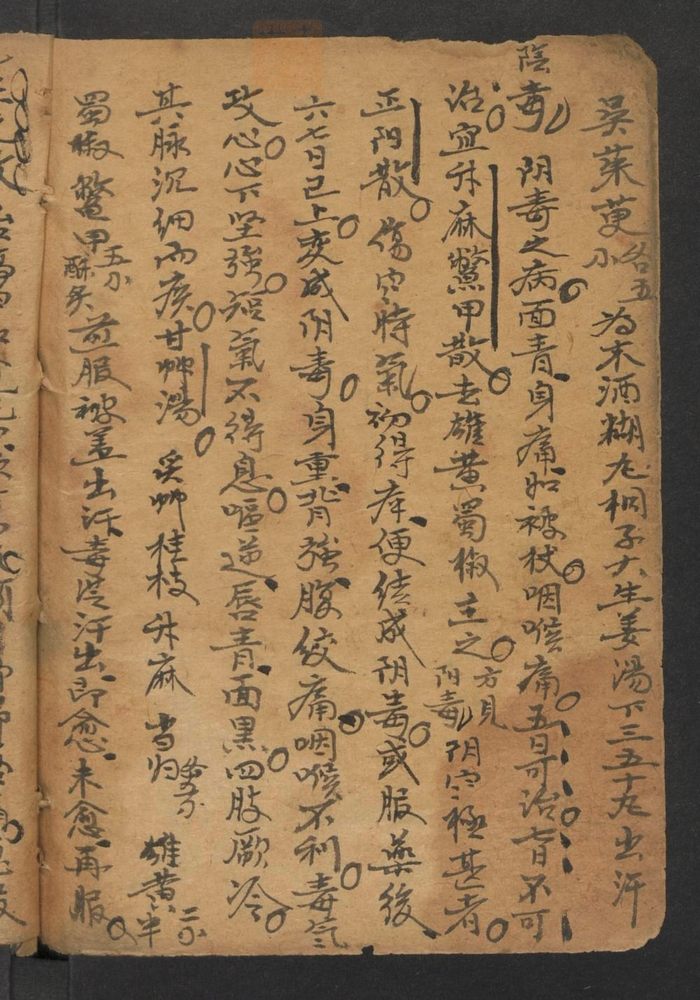 吴茱萸各五分 为末酒糊丸桐子大生姜湯下三五十丸出汗
陰毒 阴毒之病面青身痛如被杖咽喉痛五日可治七日不可
治宜升麻鱉甲散去雄黄蜀椒主之方見阳毒 阴寒極甚者
正阳散 傷寒時氣初得病便结成阴毒或服藥後
六七日已上変成阴毒身重背強腹绞痛咽喉不利毒気
攻心心下坚强短氣不得息嘔逆唇青面黑四肢厥冷
其脉沉细而疾甘艸湯 炙艸 桂枝 升麻 当归各六分 雄黄二分半
蜀椒 鱉甲五分酥炙 煎服被盖出汗毒從汗出即愈未愈再服